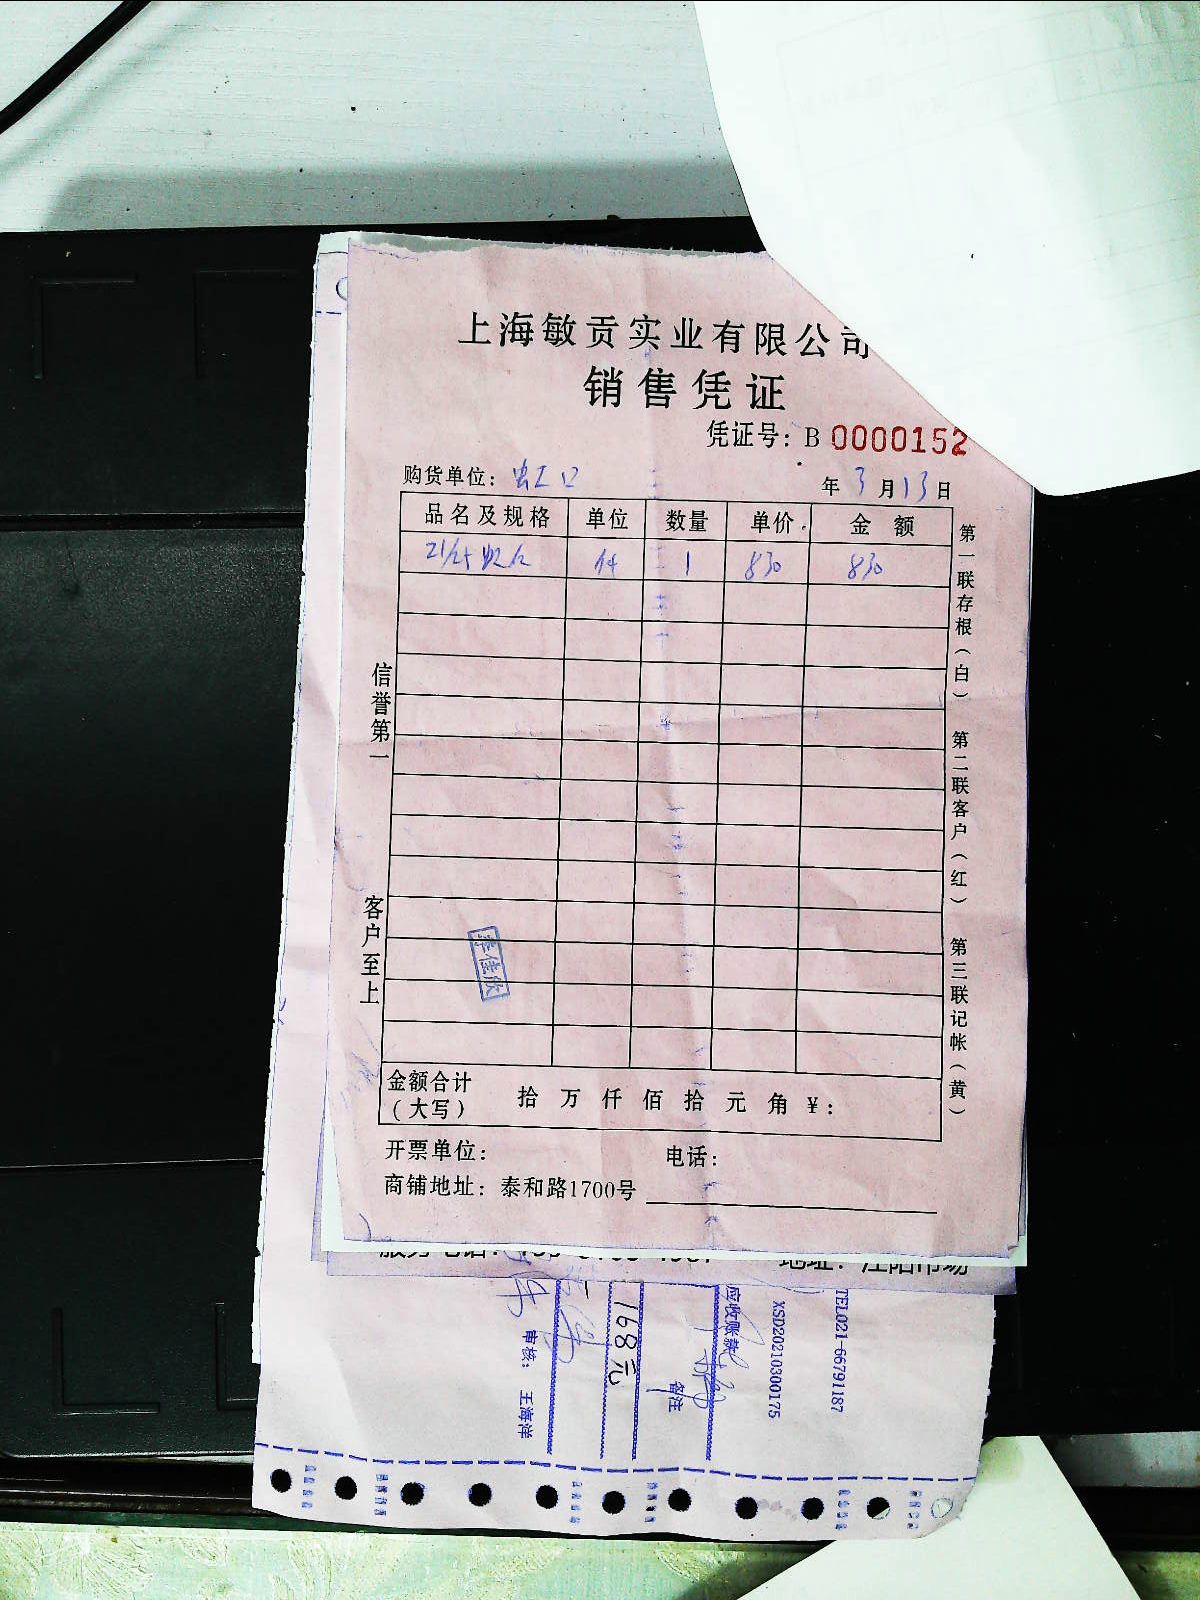 上海敏贡实业有限公司
销售凭证
凭证号：B 0000152
购货单位：虹口 年 3 月 13 日
品名及规格 单位 数量 单价 金额
件 1 830 830
信誉第一
客户至上
第一联存根（白） 第二联客户（红） 第三联记帐（黄）
李佳欣
金额合计
（大写） 拾 万 仟 佰 拾 元 角 ¥：
开票单位： 电话：
商铺地址：泰和路1700号
地址：江阳市场
TEL021-66791187
XSD20210300175
应收账款
备注
168元
审核： 王海洋